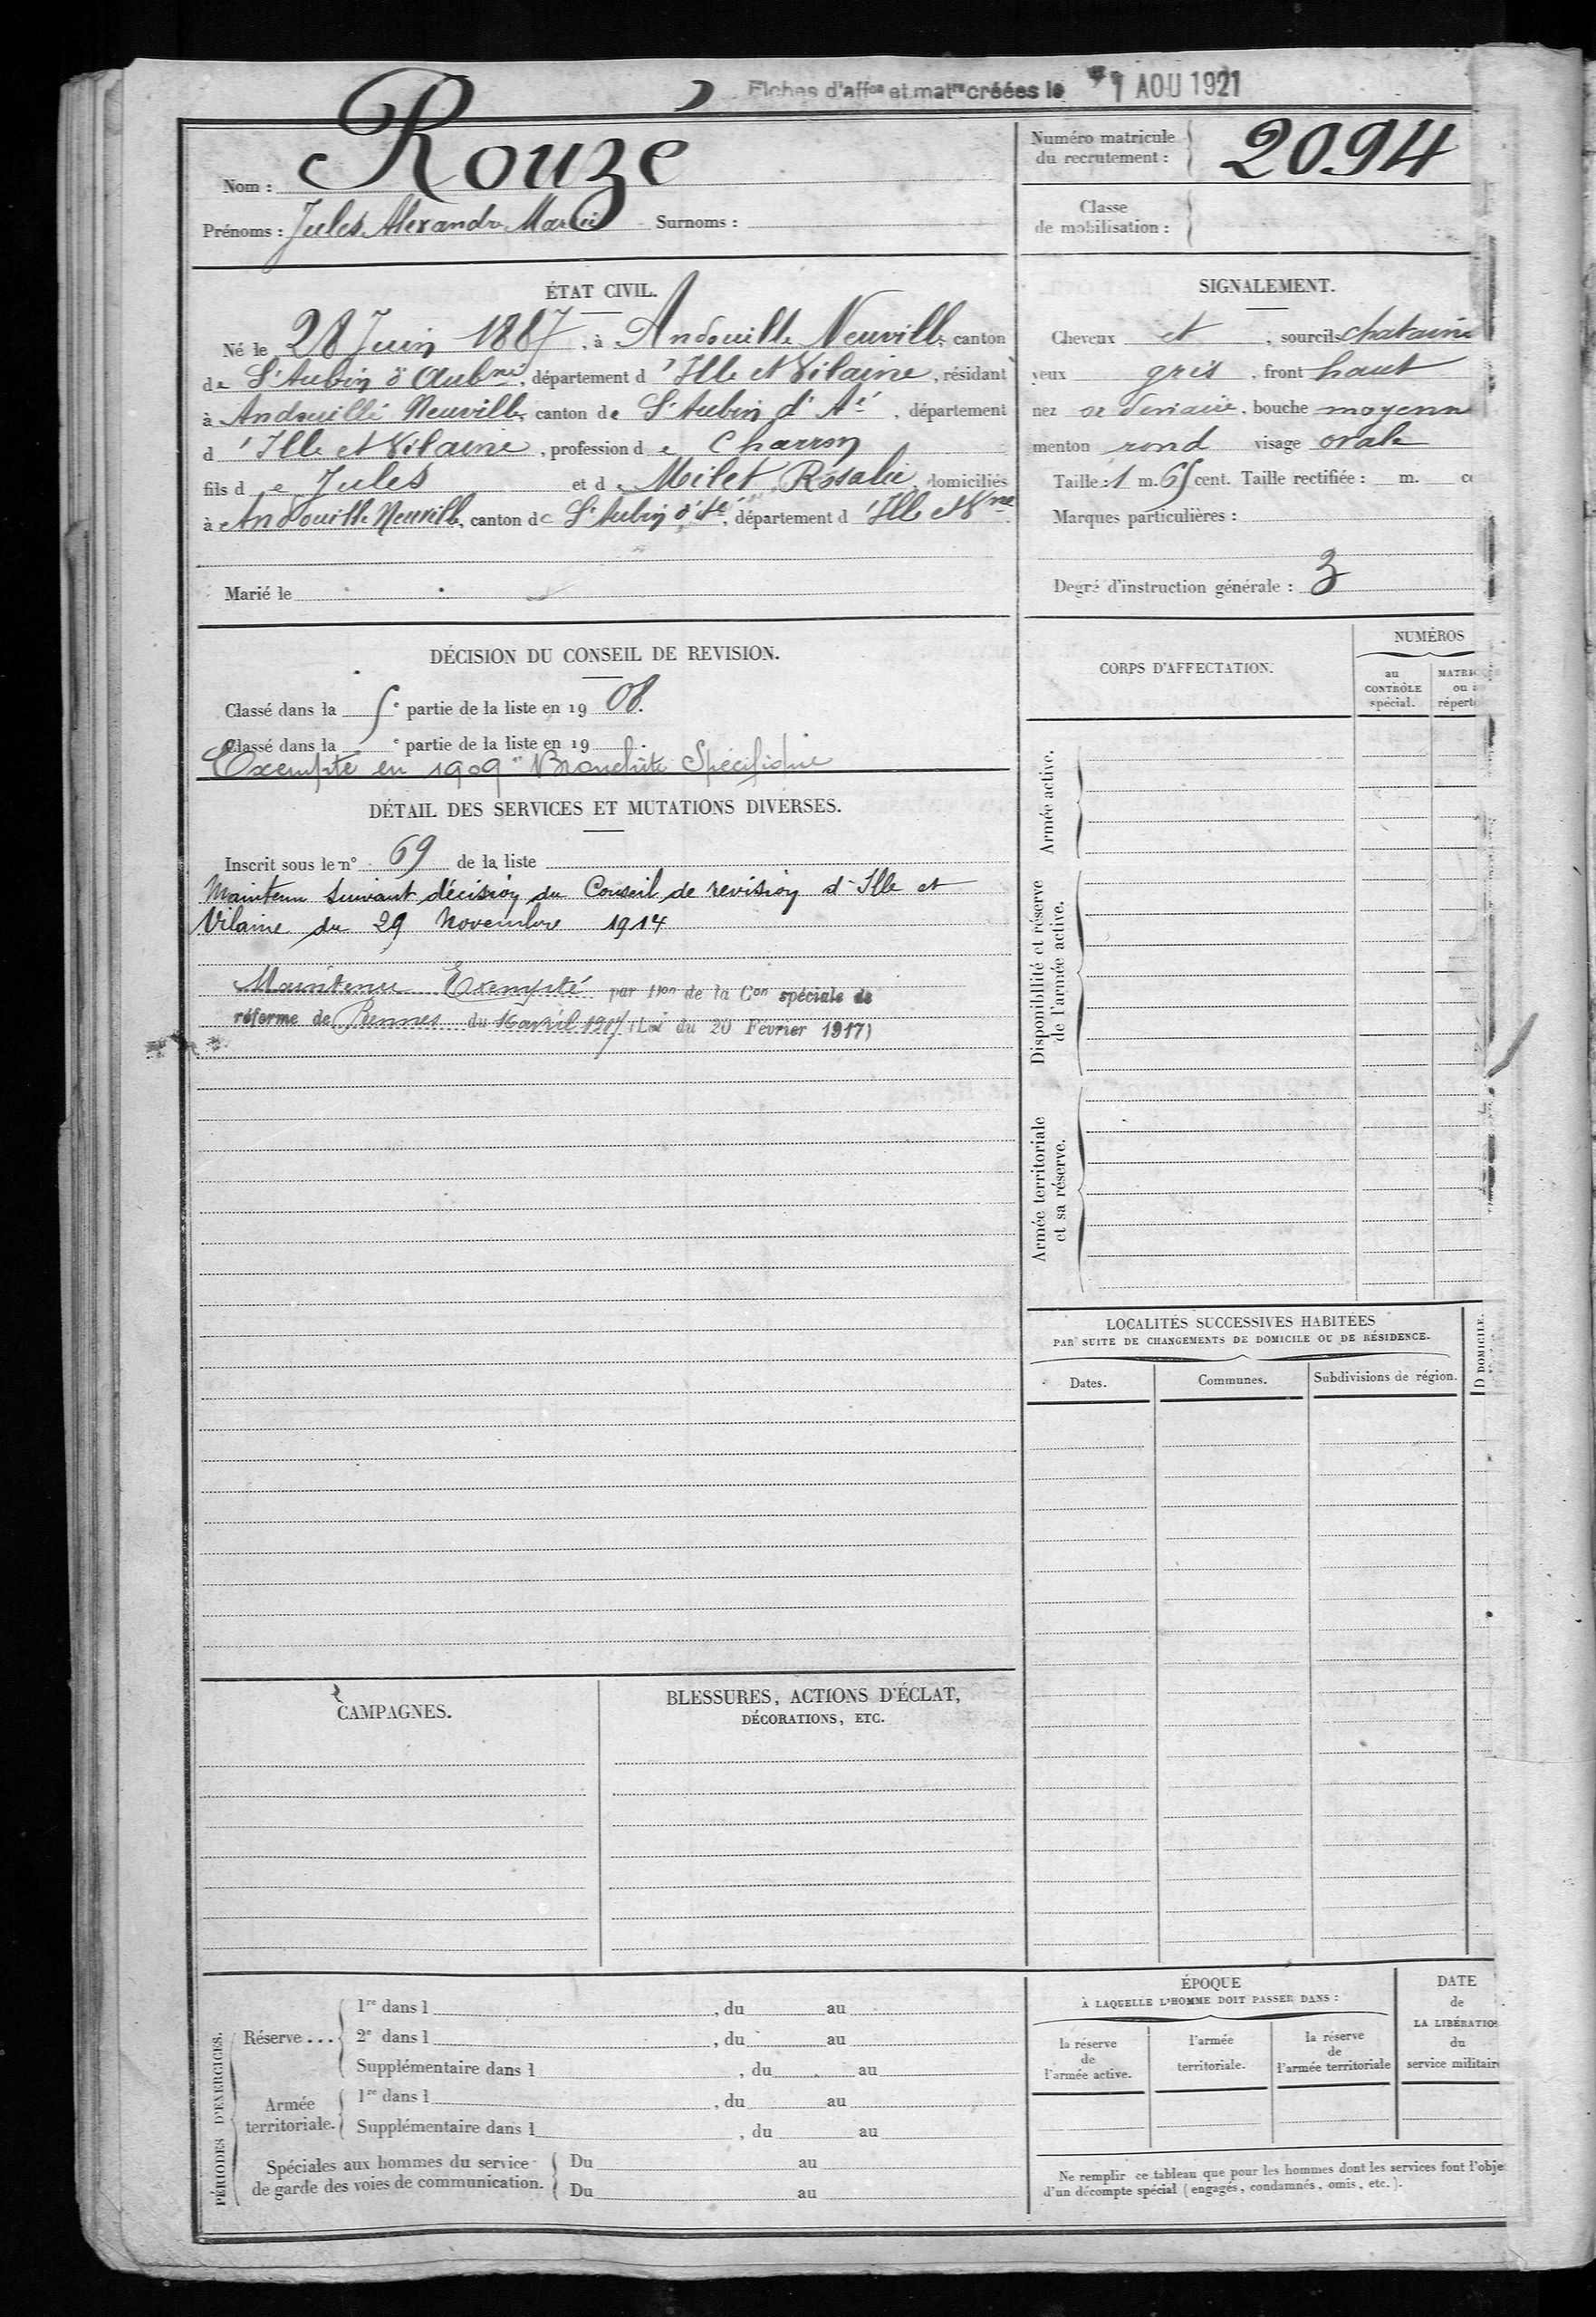 Fiches d'aff^on et mat^re créées le 1 AOU 1921
Nom : Rouzé
Prénoms : Jules Alexandre Marie Surnoms :
Numéro matricule
du recrutement : 2094
Classe
de mobilisation :
ÉTAT CIVIL.
Né le 28 Juin 1887, à Andouillé Neuville, canton
de St Aubin d'Aub^né, département d'Ille et Vilaine, résidant
à Andouillé Neuville, canton de St Aubin d'A^é, département
d'Ille et Vilaine, profession de Charron
fils de Jules et de Milet Rosalie, domiciliés
à Andouillé Neuville, canton de St Aubin d', département d'Ille et V^ne.
Marié le
SIGNALEMENT.
Cheveux et, sourcils chatains
yeux gris, front haut
nez, bouche moyenne
menton rond visage ovale
Taille : 1 m. 65 cent. Taille rectifiée : m. c
Marques particulières :
Degré d'instruction générale : 3
DÉCISION DU CONSEIL DE REVISION.
Classé dans la 5^e partie de la liste en 1908.
Classé dans la ^e partie de la liste en 19 .
Exempté en 1909 "Bronchite Spécifique
DÉTAIL DES SERVICES ET MUTATIONS DIVERSES.
Inscrit sous le n° 69 de la liste
Maintenu suivant décision du Conseil de revision d'Ille et
Vilaine du 29 Novembre 1914
Maintenu Exempté par D^on de la C^on spéciale de
réforme de Rennes du 16 avril 1917 (Loi du 20 Février 1917)
CORPS D'AFFECTATION.
NUMÉROS
au
CONTRÔLE
spécial.
MATRIC
ou a
réperto
Armée active.
Disponibilité et réserve
de l'armée active.
Armée territoriale
et sa réserve.
LOCALITÉS SUCCESSIVES HABITÉES
PAR SUITE DE CHANGEMENTS DE DOMICILE OU DE RÉSIDENCE.
Dates.
Communes.
Subdivisions de région.
D DOMICILE.
CAMPAGNES.
BLESSURES, ACTIONS D'ÉCLAT,
DÉCORATIONS, ETC.
PÉRIODES D'EXERCICES.
Réserve ...
1^re dans l , du au
2^e dans l , du au
Supplémentaire dans l , du au
Armée
territoriale.
1^re dans l , du au
Supplémentaire dans l , du au
Spéciales aux hommes du service
de garde des voies de communication.
Du au
Du au
ÉPOQUE
À LAQUELLE L'HOMME DOIT PASSER DANS :
la réserve
de
l'armée active.
l'armée
territoriale.
la réserve
de
l'armée territoriale
DATE
de
LA LIBÉRATION
du
service militaire
Ne remplir ce tableau que pour les hommes dont les services font l'obje
d'un décompte spécial (engagés, condamnés, omis, etc.).